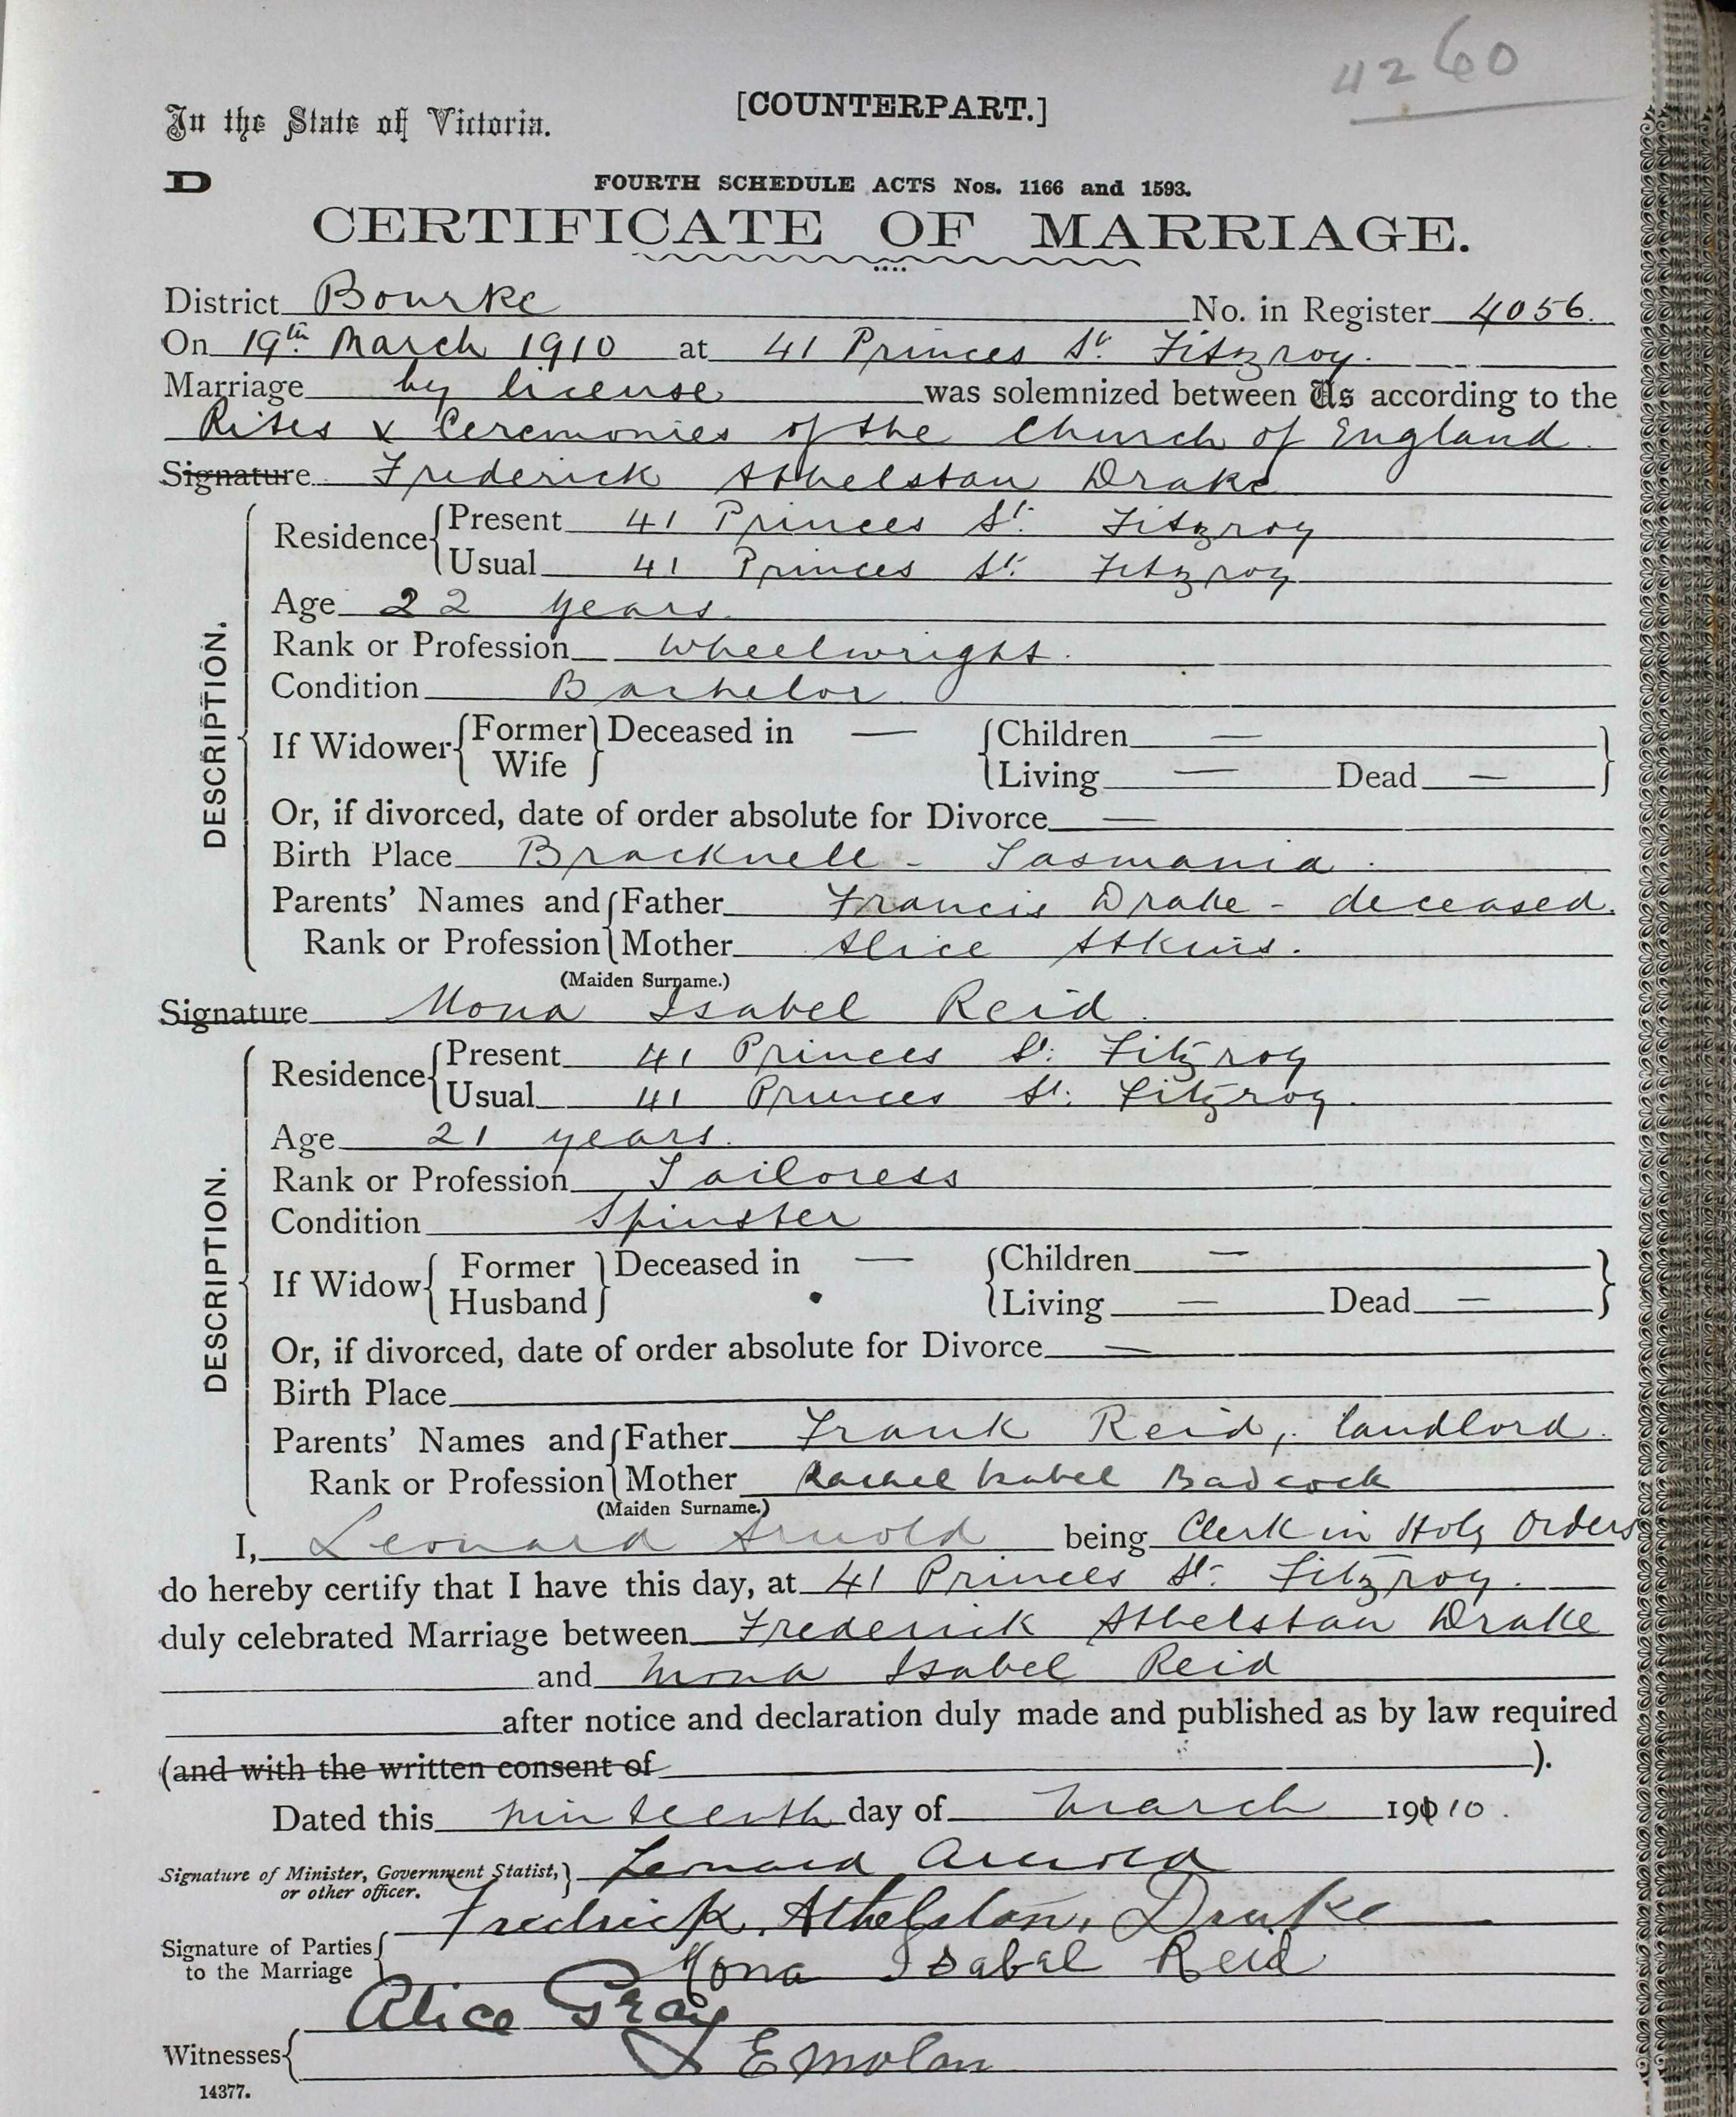 4260
[COUNTERPART.]
In the State of Victoria.
D
FOURTH SCHEDULE ACTS Nos. 1166 and 1593.
CERTIFICATE OF MARRIAGE.
District Bourke No. in Register 4056.
On 19th March 1910 at 41 Princes St. Fitzroy.
Marriage by license was solemnized between Us according to the
Rites & Ceremonies of the Church of England.
Signature Frederick Athelstan Drake
DESCRIPTION.
Residence { Present 41 Princes St. Fitzroy
Usual 41 Princes St. Fitzroy
Age 22 years
Rank or Profession Wheelwright.
Condition Bachelor
If Widower { Former Wife } Deceased in — { Children —
Living — Dead — }
Or, if divorced, date of order absolute for Divorce —
Birth Place Bracknell - Tasmania.
Parents' Names and { Father Francis Drake - deceased.
Rank or Profession { Mother Alice Atkins.
(Maiden Surname.)
Signature Mona Isabel Reid
DESCRIPTION.
Residence { Present 41 Princes St. Fitzroy
Usual 41 Princes St. Fitzroy.
Age 21 years.
Rank or Profession Tailoress
Condition Spinster
If Widow { Former Husband } Deceased in — { Children —
Living — Dead — }
Or, if divorced, date of order absolute for Divorce —
Birth Place
Parents' Names and { Father Frank Reid, landlord.
Rank or Profession { Mother Rachel Isabel Badcock
(Maiden Surname.)
I, Leonard Arnold being Clerk in Holy Orders
do hereby certify that I have this day, at 41 Princes St. Fitzroy.
duly celebrated Marriage between Frederick Athelstan Drake
and Mona Isabel Reid
after notice and declaration duly made and published as by law required
(and with the written consent of ).
Dated this ninteenth day of March 190 10.
Signature of Minister, Government Statist, } Leonard Arnold
or other officer.
Fredrick. Athelstan. Drake
Signature of Parties {
to the Marriage Mona Isabal Reid
Alice Gray
Witnesses { E Molan
14377.